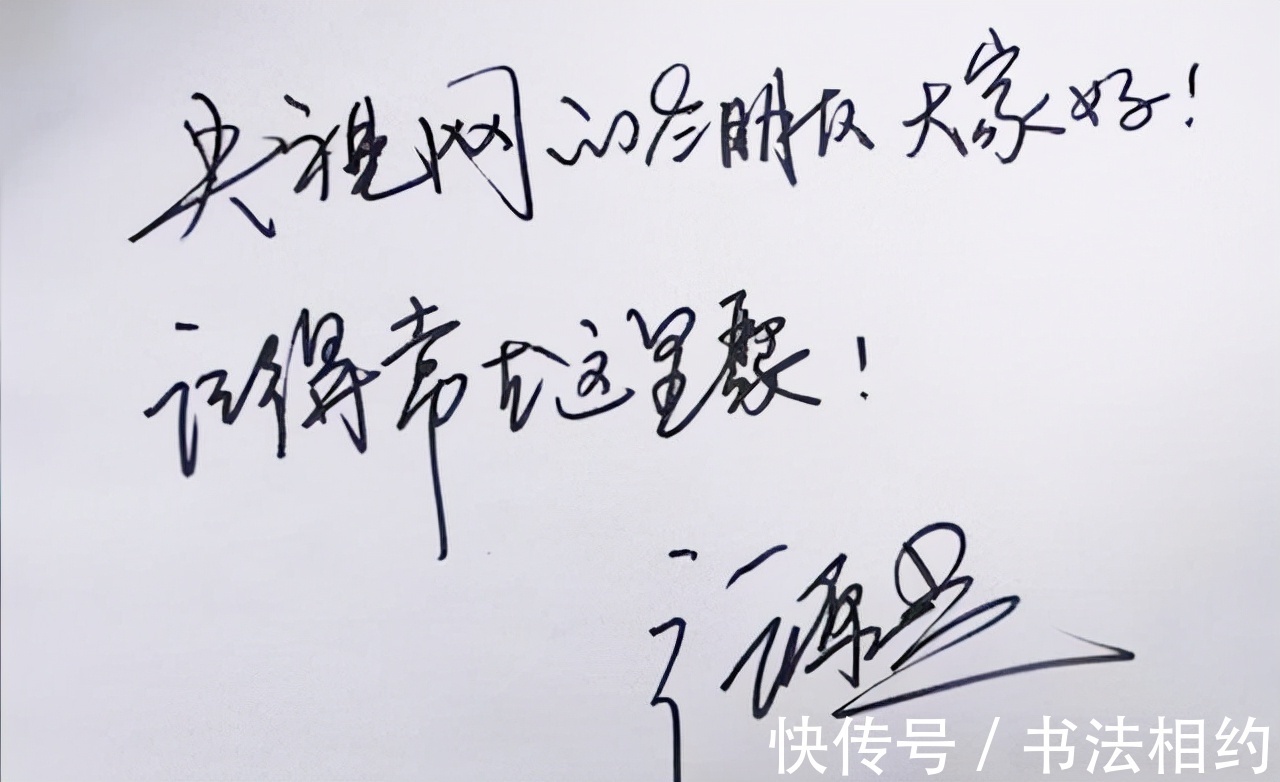 央视网的各朋友大家好！
记得常去这里聚！
快传号 / 书法相约